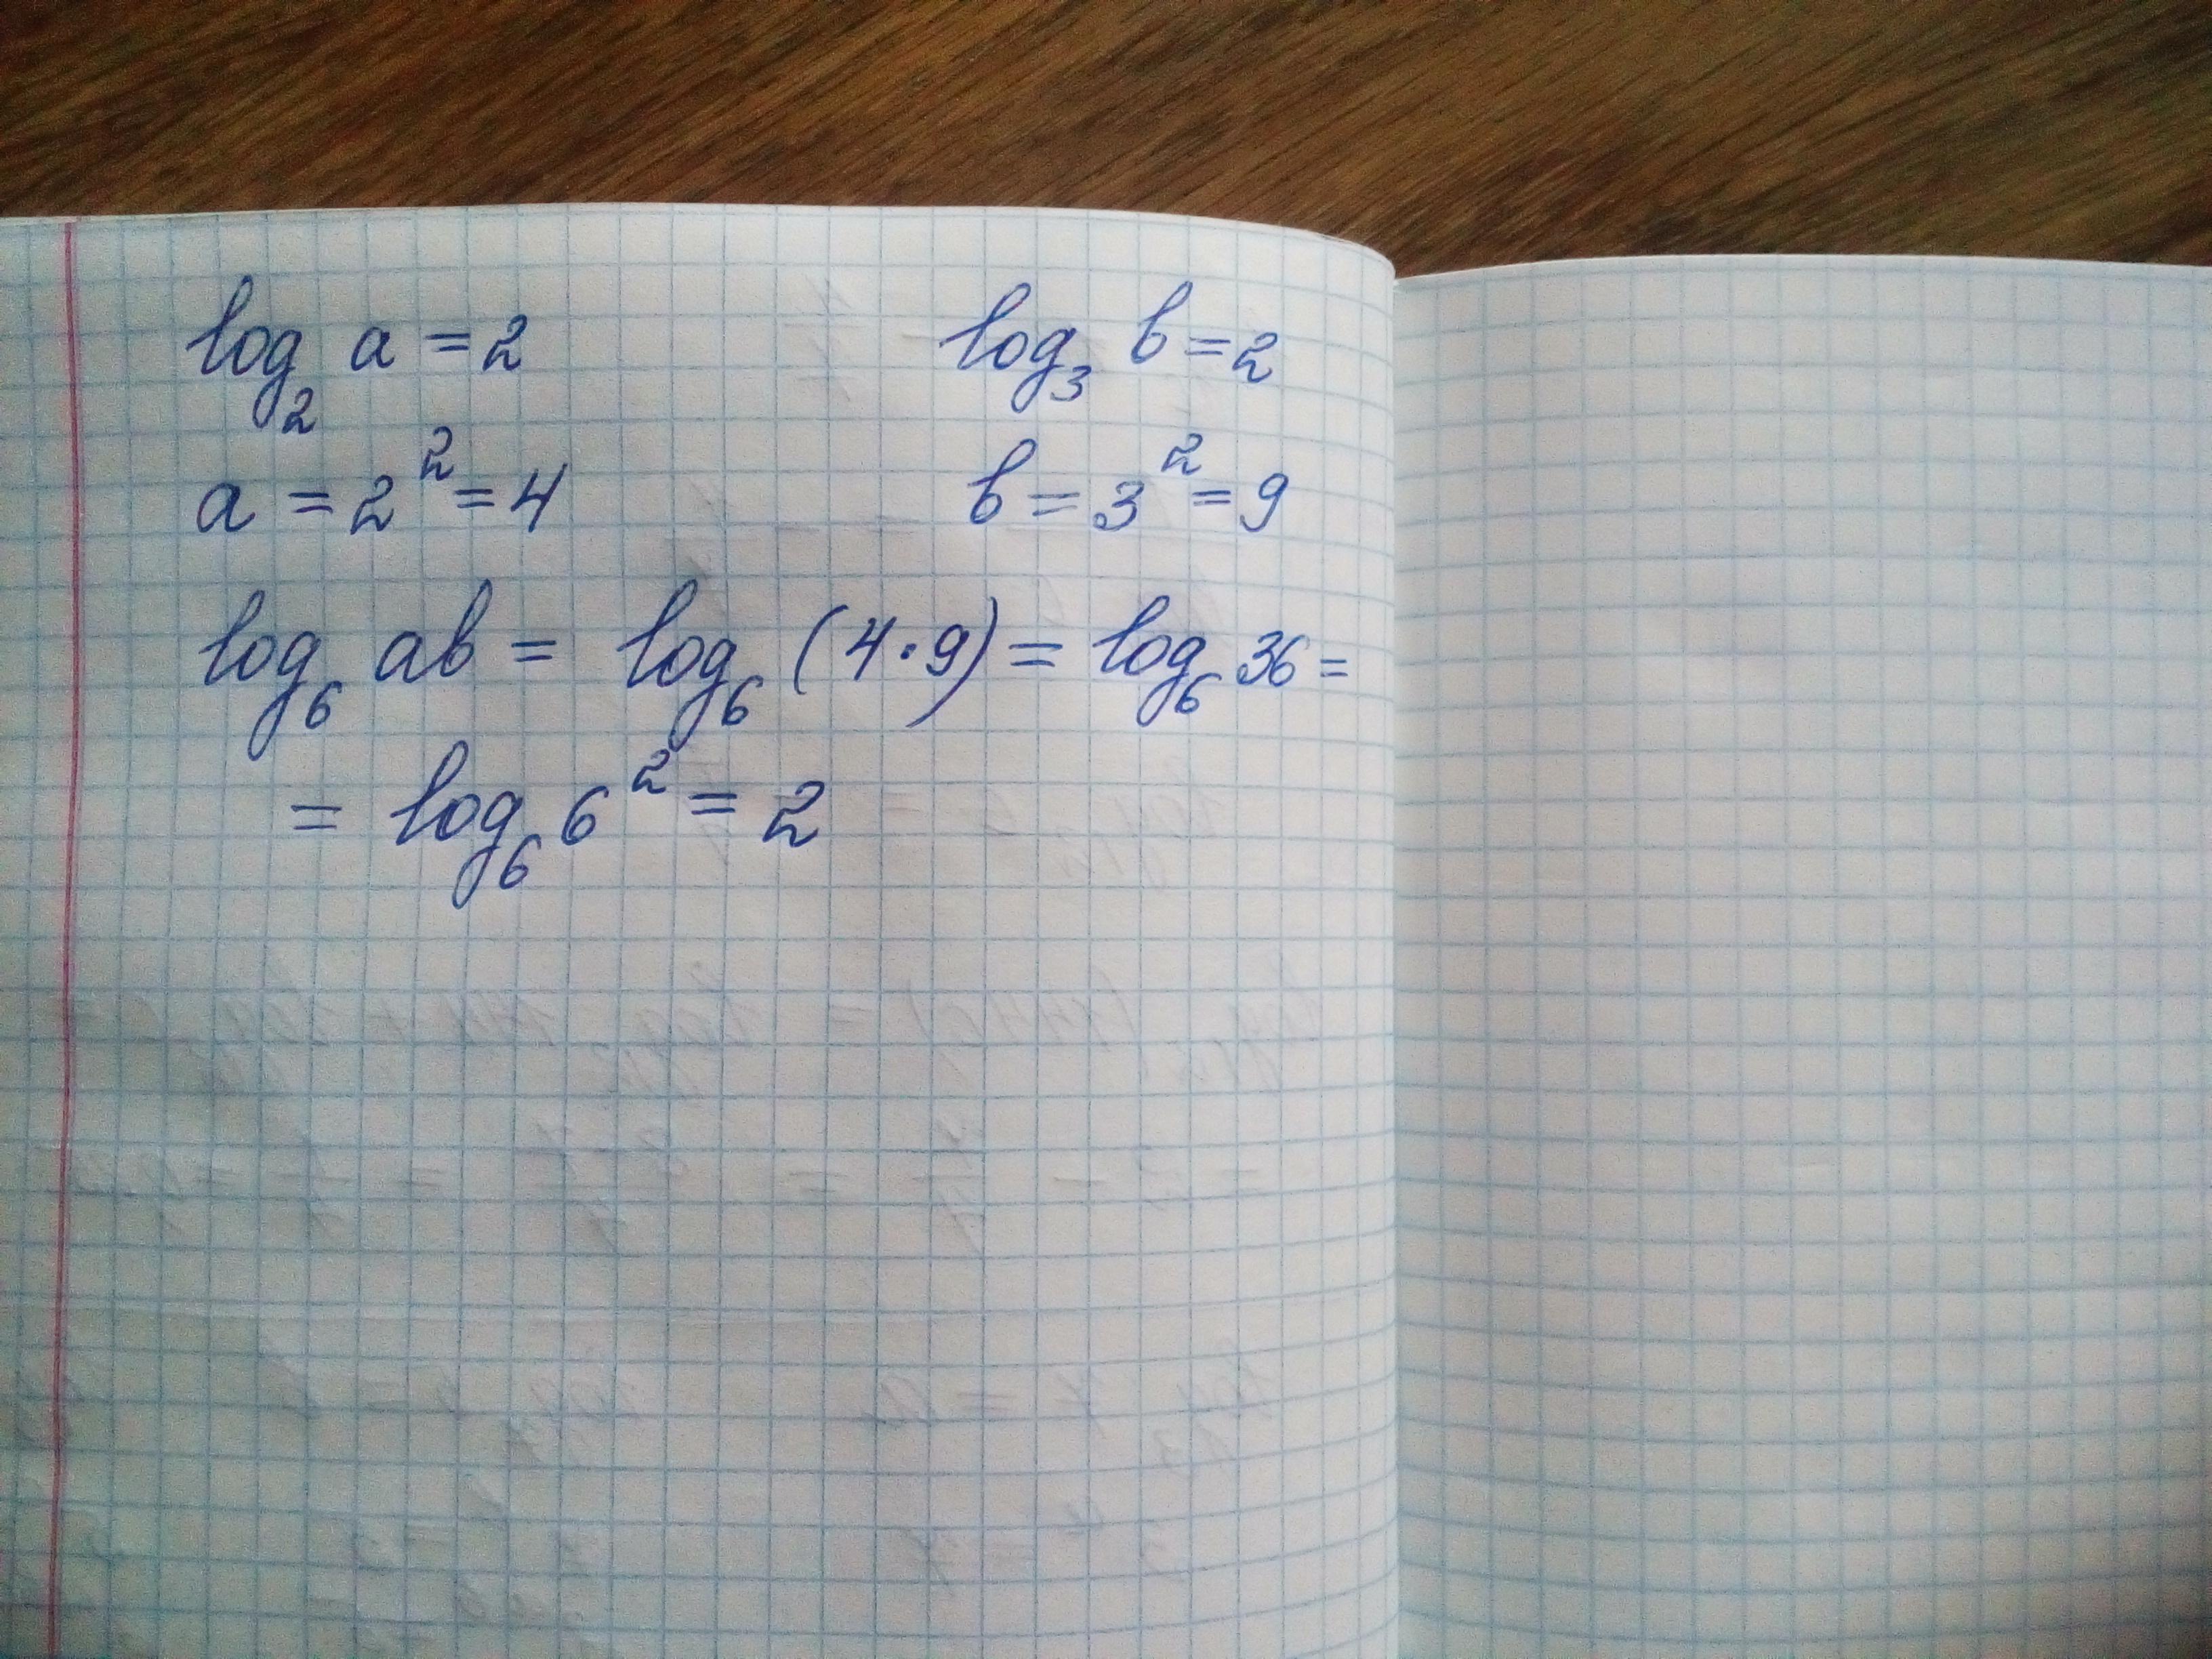 log₂ a = 2    log₃ b = 2
a = 2² = 4    b = 3² = 9
log₆ ab = log₆ (4·9) = log₆ 36 =
= log₆ 6² = 2